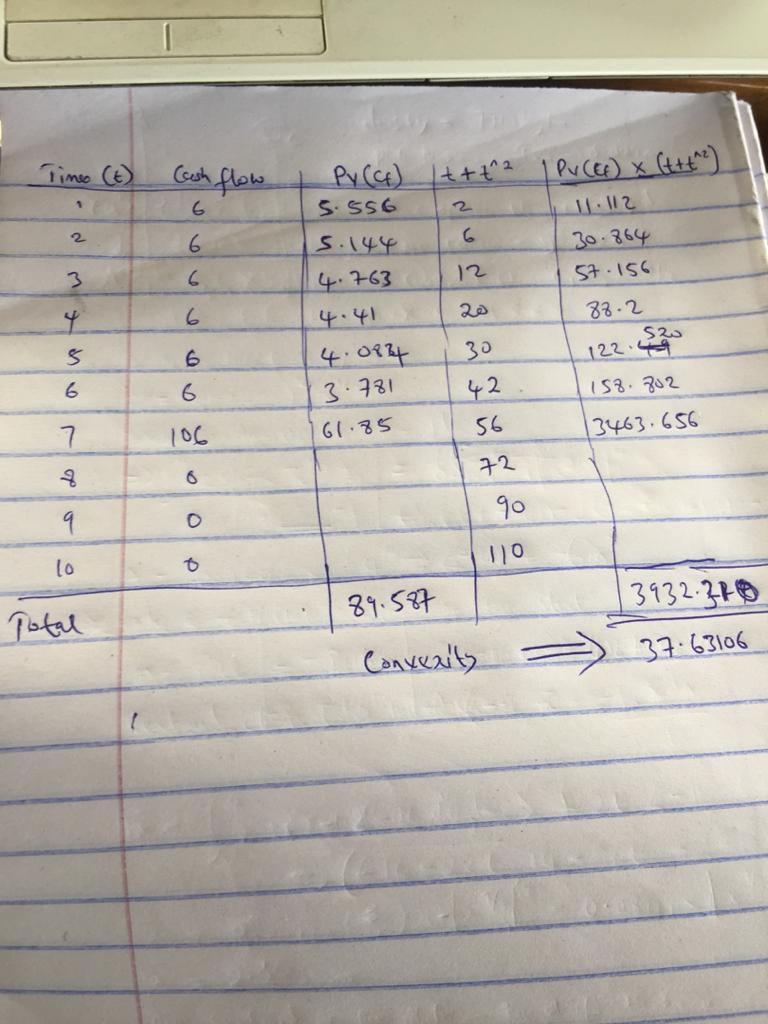 Time (t) Cash flow Pv(Cf) t+t^2 Pv(Cf) x (t+t^2)
1 6 5.556 2 11.112
2 6 5.144 6 30.864
3 6 4.763 12 57.156
4 6 4.41 20 88.2
5 6 4.0834 30 122.520
6 6 3.781 42 158.802
7 106 61.85 56 3463.656
8 0 72
9 0 90
10 0 110
Total 89.587
Convexity ⟹ 37.63106